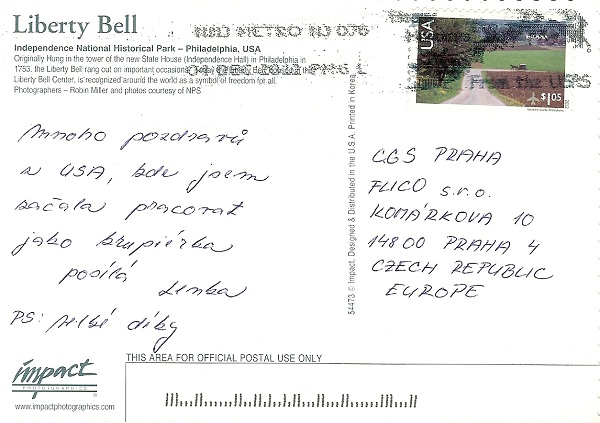 Liberty Bell
Independence National Historical Park – Philadelphia, USA
Originally Hung in the tower of the new State House (Independence Hall) in Philadelphia in
1753, the Liberty Bell rang out on important occasions. Today
Liberty Bell Center, is recognized around the world as a symbol of freedom for all.
Photographers – Robin Miller and photos courtesy of NPS
NJ METRO NJ
USA
$1.05
Mnoho pozdravů
z USA, kde jsem
začala pracovat
jako krupiérka
posílá
Lenka
PS: velké díky
54473 © Impact. Designed & Distributed in the U.S.A. Printed in Korea.
CGS PRAHA
FLICO s.r.o.
KOMÁRKOVA 10
148 00 PRAHA 4
CZECH REPUBLIC
EUROPE
THIS AREA FOR OFFICIAL POSTAL USE ONLY
impact
PHOTOGRAPHICS
www.impactphotographics.com